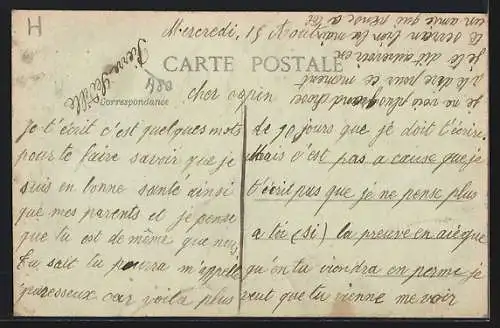 H
Mercredi, 15 Août
CARTE POSTALE
Correspondance
cher copin
Je t'écrit c'est quelques mots
pour te faire savoir que je
suis en bonne santé ainsi
que mes parents et je pense
que tu est de même que nous
tu, sait tu pourra m'appele
paresseux car voila plus
de 90 jours que je doit t'écrire
Mais c'est pas a cause que je
t'écrit pas que je ne pense plus
a toi (si) la preuve en ai que
qu'en tu viendra en perme je
veut que tu vienne me voir
je ne vois plus grand chose
a te dire pour ce moment
je te dit au revoir en
te serrain bien la main
un amie qui pense a toi
Pierre